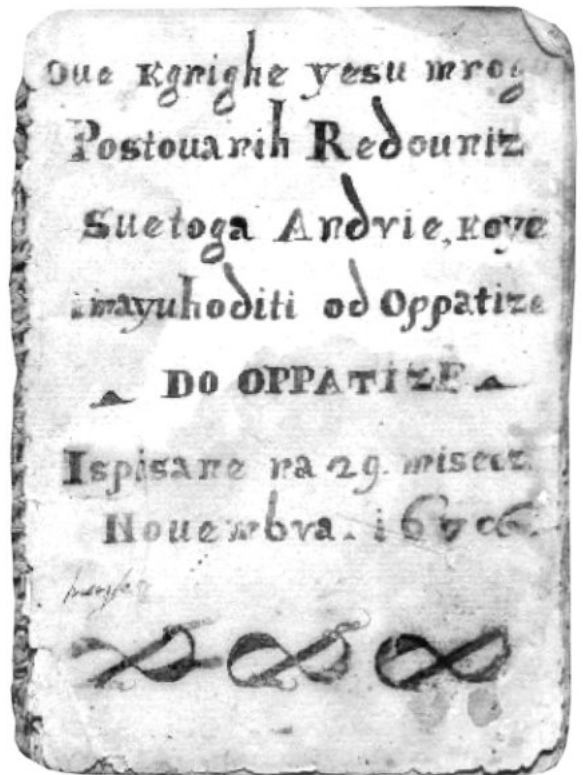 Oue Kgnighe yesu mnog
Postouanih Redouniz
Suetoga Andrie, koye
imayuhoditi od Oppatize
DO OPPATIZE
Ispisane na 29. misecz
Nouembra.